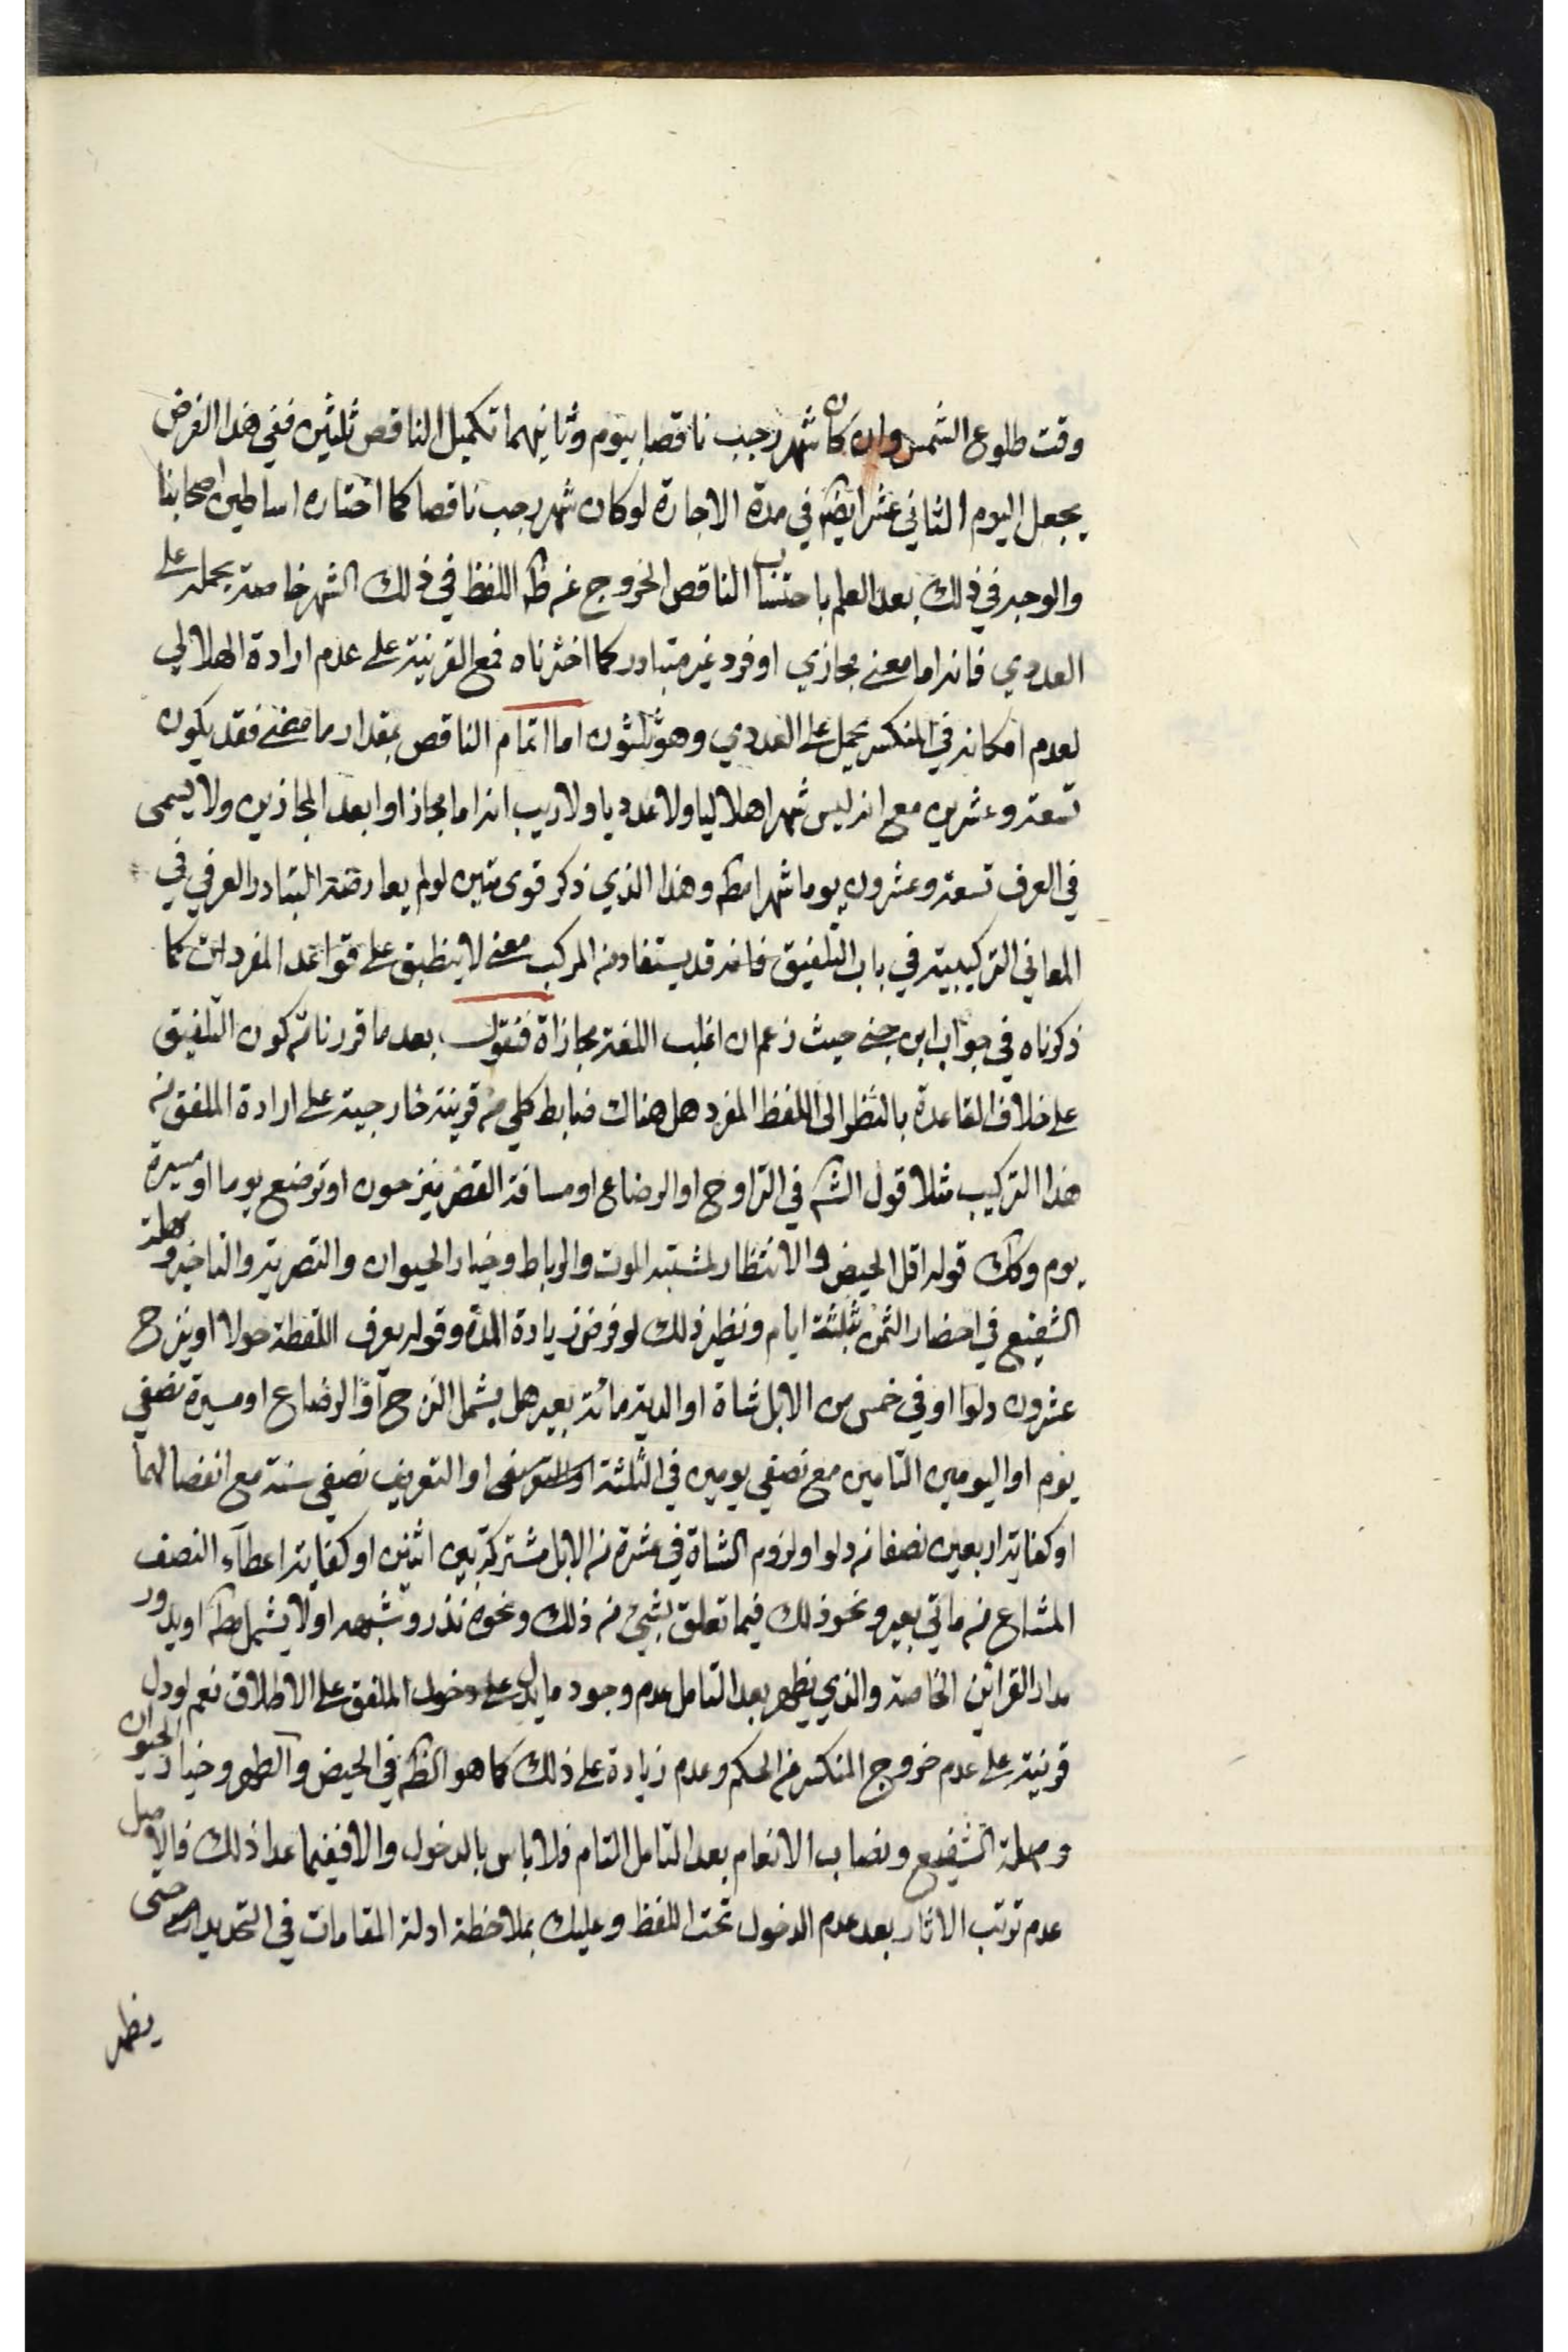 وقت طلوع الشمس وان كان شهر رجب ناقصا بيوم وثانيهما تكميل الناقص ثلثين ففي هذا الفرض
يجعل اليوم الثاني عشر ايضا في مدة الاجارة لو كان شهر رجب ناقصا كما اختاره اساطين اصحابنا
والوجه في ذلك بعد العلم باحتساب الناقص الخروج عن ظ اللفظ في ذلك الشهر خاصة بحمله على
العددي فانه اما معنى مجازي او فرد غير متبادر كما اخترناه فمع القرينة على عدم ارادة الهلالي
لعدم امكانه في المنكسر يحمل على العددي وهو ثلثون اما اتمام الناقص بمقدار ما مضى فقد يكون
تسعة وعشرين مع انه ليس شهرا هلاليا ولا عدديا ولا ريب انه اما مجاز او ابعد المجازين ولا يسمى
في العرف تسعة وعشرون يوما شهرا مط وهذا الذي ذكر قوى متين لو لم يعارضه التبادر العرفي في
المعاني التركيبية في باب التلفيق فانه قد يستفاد من المركب معنى لا ينطبق على قواعد المفردات كما
ذكرناه في جواب ابن جني حيث زعم ان اغلب اللغة مجازاة فنقول بعد ما قررنا من كون التلفيق
على خلاف القاعدة بالنظر الى اللفظ المفرد هل هناك ضابط كلي من قرينة خارجية على ارادة الملفق من
هذا التركيب مثلا قول الش في التراوح او الرضاع او مسافة القصر ينزحون او ترضع يوما او مسيرة
يوم وكك قوله اقل الحيض والانتظار لمشتبه الموت والرباط وخيار الحيوان والتصرية والتاخير ومهلة
الشفيع في احضار الثمن ثلثة ايام ونظير ذلك لو فرض زيادة المدة وقوله يعرف اللقطة حولا او ينزح
عشرون دلوا او في خمس من الابل شاة او الدية مائة بعير هل يشمل النزح او الرضاع او مسيرة نصفي
يوم او اليومين التامين مع نصفي يومين في الثلثة او التعريف نصفي سنة مع انفصالهما
او كفاية اربعين نصفا من دلو او لزوم الشاة في عشرة من الابل مشتركة بين اثنين او كفاية اعطاء النصف
المشاع من ماتي بعير ونحو ذلك فيما تعلق بشيء من ذلك ونحوه نذر وشبهه او لا يشمل مط او يدور
مدار القرائن الخاصة والذي يظهر بعد التامل عدم وجود ما يدل على دخول الملفق على الاطلاق نعم لو دل
قرينة على عدم خروج المنكسر من الحكم وعدم زيادة على ذلك كما هو الظ في الحيض والطهر وخيار الحيوان
ومهلة الشفيع ونصاب الانعام بعد التامل التام فلا باس بالدخول والا ففيما عدا ذلك فالاصل
عدم ترتب الاثار بعد عدم الدخول تحت اللفظ وعليك بملاحظة ادلة المقامات في التحديدات حتى
يظهر